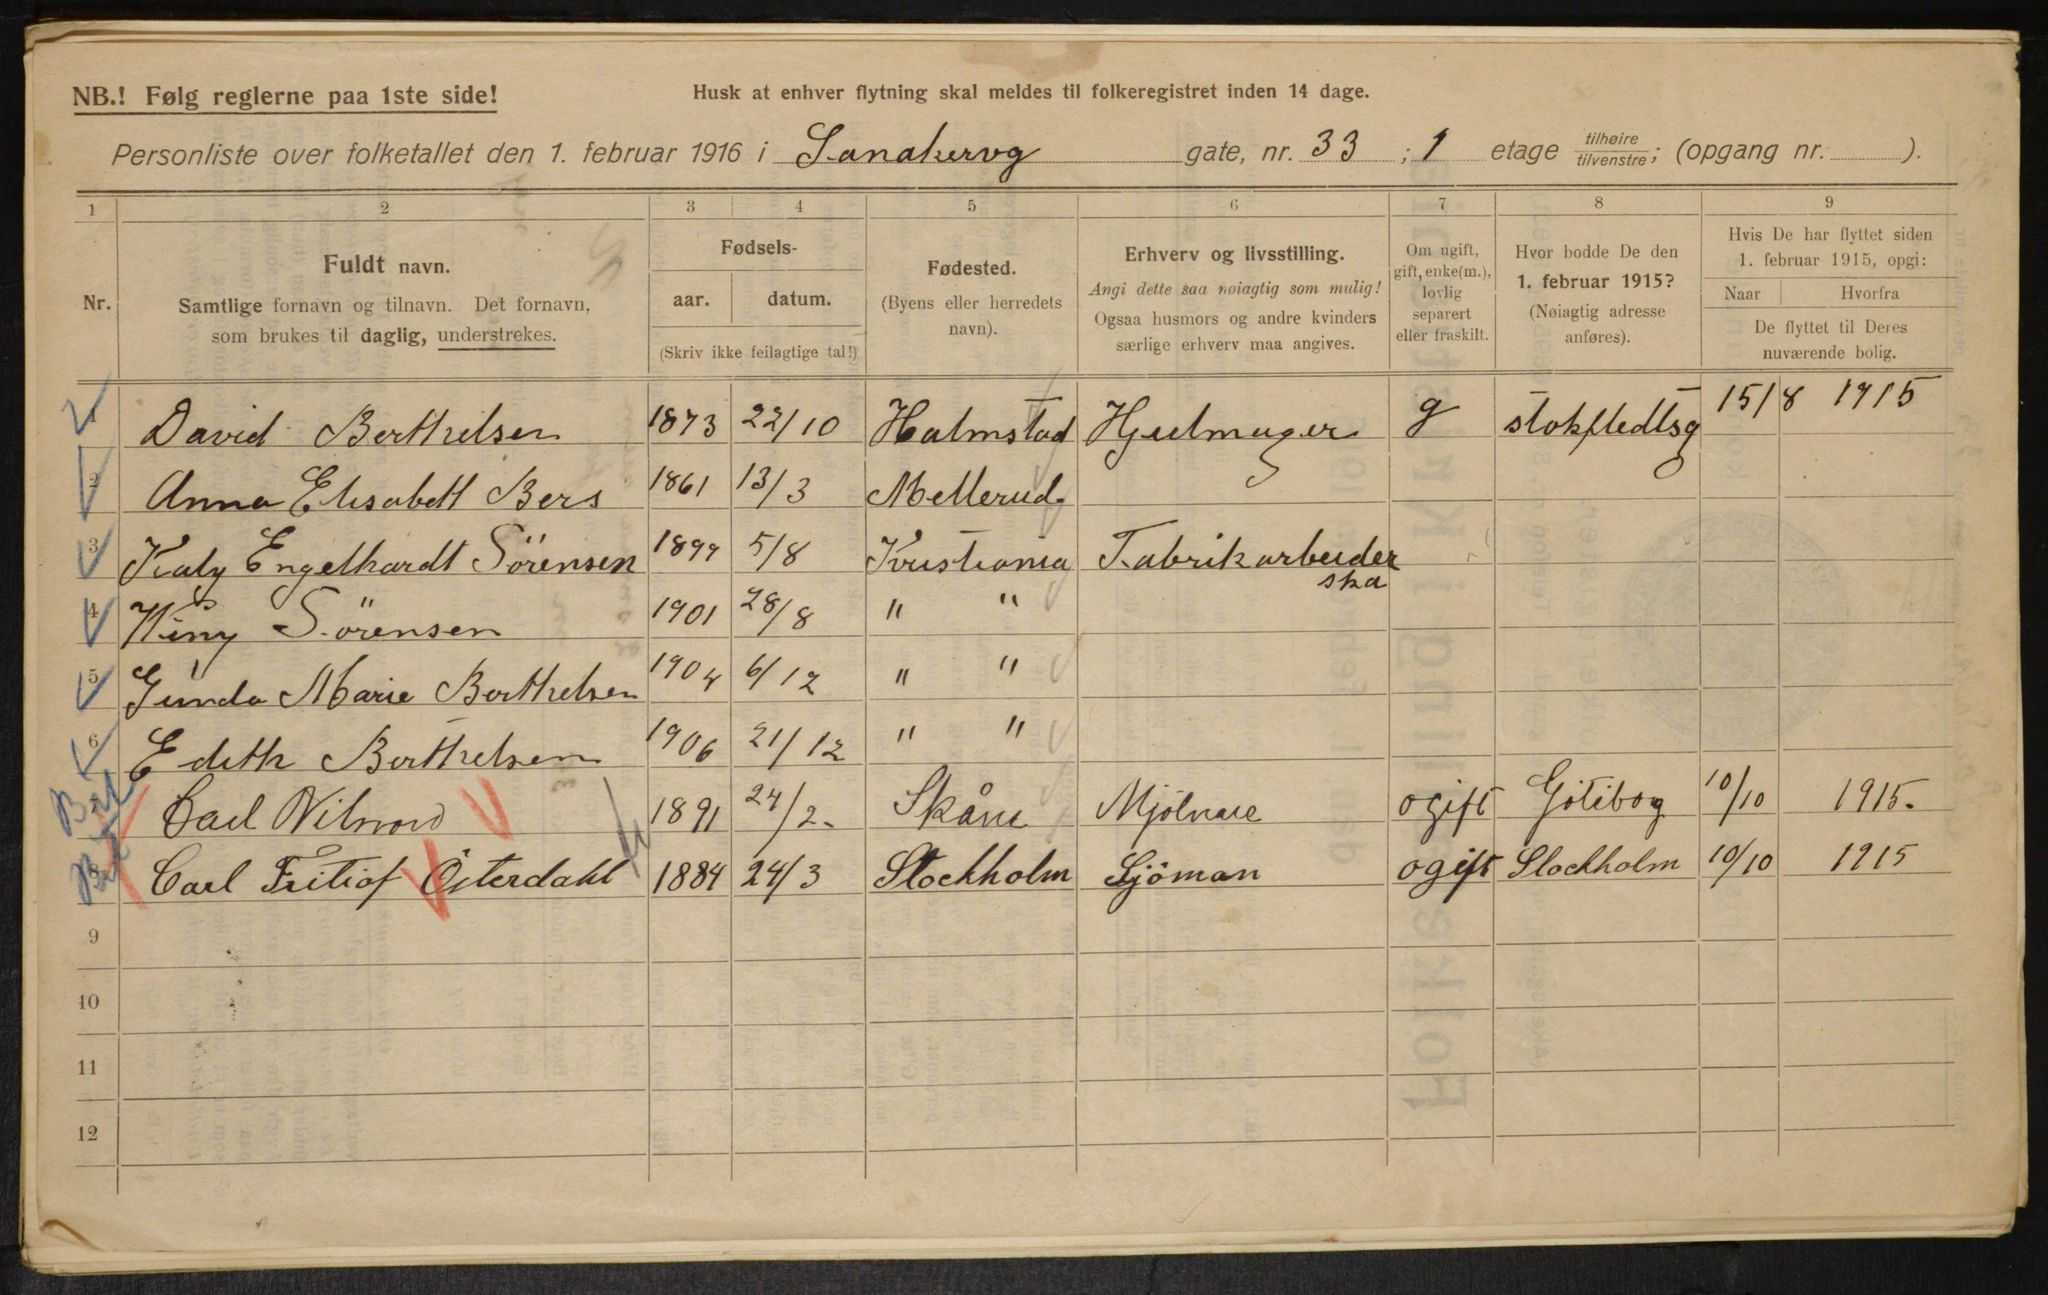 NB.! Følg reglerne paa 1ste side!
Husk at enhver flytning skal meldes til folkeregistret inden 14 dage.
Personliste over folketallet den 1. februar 1916 i Sanakervg gate, nr. 33 ; 1 etage tilhøire/tilvenstre; (opgang nr. ).
1 2 3 4 5 6 7 8 9
Nr.
Fuldt navn.
Samtlige fornavn og tilnavn. Det fornavn,
som brukes til daglig, understrekes.
Fødsels-
aar. datum.
(Skriv ikke feilagtige tal!)
Fødested.
(Byens eller herredets
navn).
Erhverv og livsstilling.
Angi dette saa nøiagtig som mulig!
Ogsaa husmors og andre kvinders
særlige erhverv maa angives.
Om ugift,
gift, enke(m.),
lovlig
separert
eller fraskilt.
Hvor bodde De den
1. februar 1915?
(Nøiagtig adresse
anføres).
Hvis De har flyttet siden
1. februar 1915, opgi:
Naar Hvorfra
De flyttet til Deres
nuværende bolig.
1 David Berthelsen 1873 22/10 Halmstad Hjulmager g stokfledtsg 15/8 1915
2 Anna Elisabett Bers 1861 13/3 Mellerud
3 Kaly Engelhardt Sörensen 1899 5/8 Kristiania Fabrikarbeider
ska
4 Sörensen 1901 28/8 " "
5 Gunda Marie Berthelsen 1904 6/12 " "
6 Edith Berthelsen 1906 21/12 " "
7 Carl 1891 24/2- Skåne Mjölnare ogift Götibog 10/10 1915.
8 Carl Fritiof Österdahl 1884 24/3 Stockholm Sjöman ogift Stockholm 10/10 1915
9
10
11
12